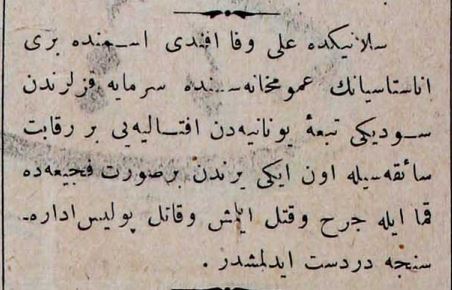 سلانیكده علی وفا افندی اسمنده بری
اناستاسیانك عمومخانه‌سنده سرمایه قزلرندن
سودیكی تبعۀ یونانیه‌دن افتالیه‌یی بر رقابت
سائقه‌سیله اون ایكی یرندن برصورت فجیعه‌ده
قما ایله جرح وقتل ایلمش وقاتل پولیس اداره‌ـ
سنجه دردست ایدلمشدر .